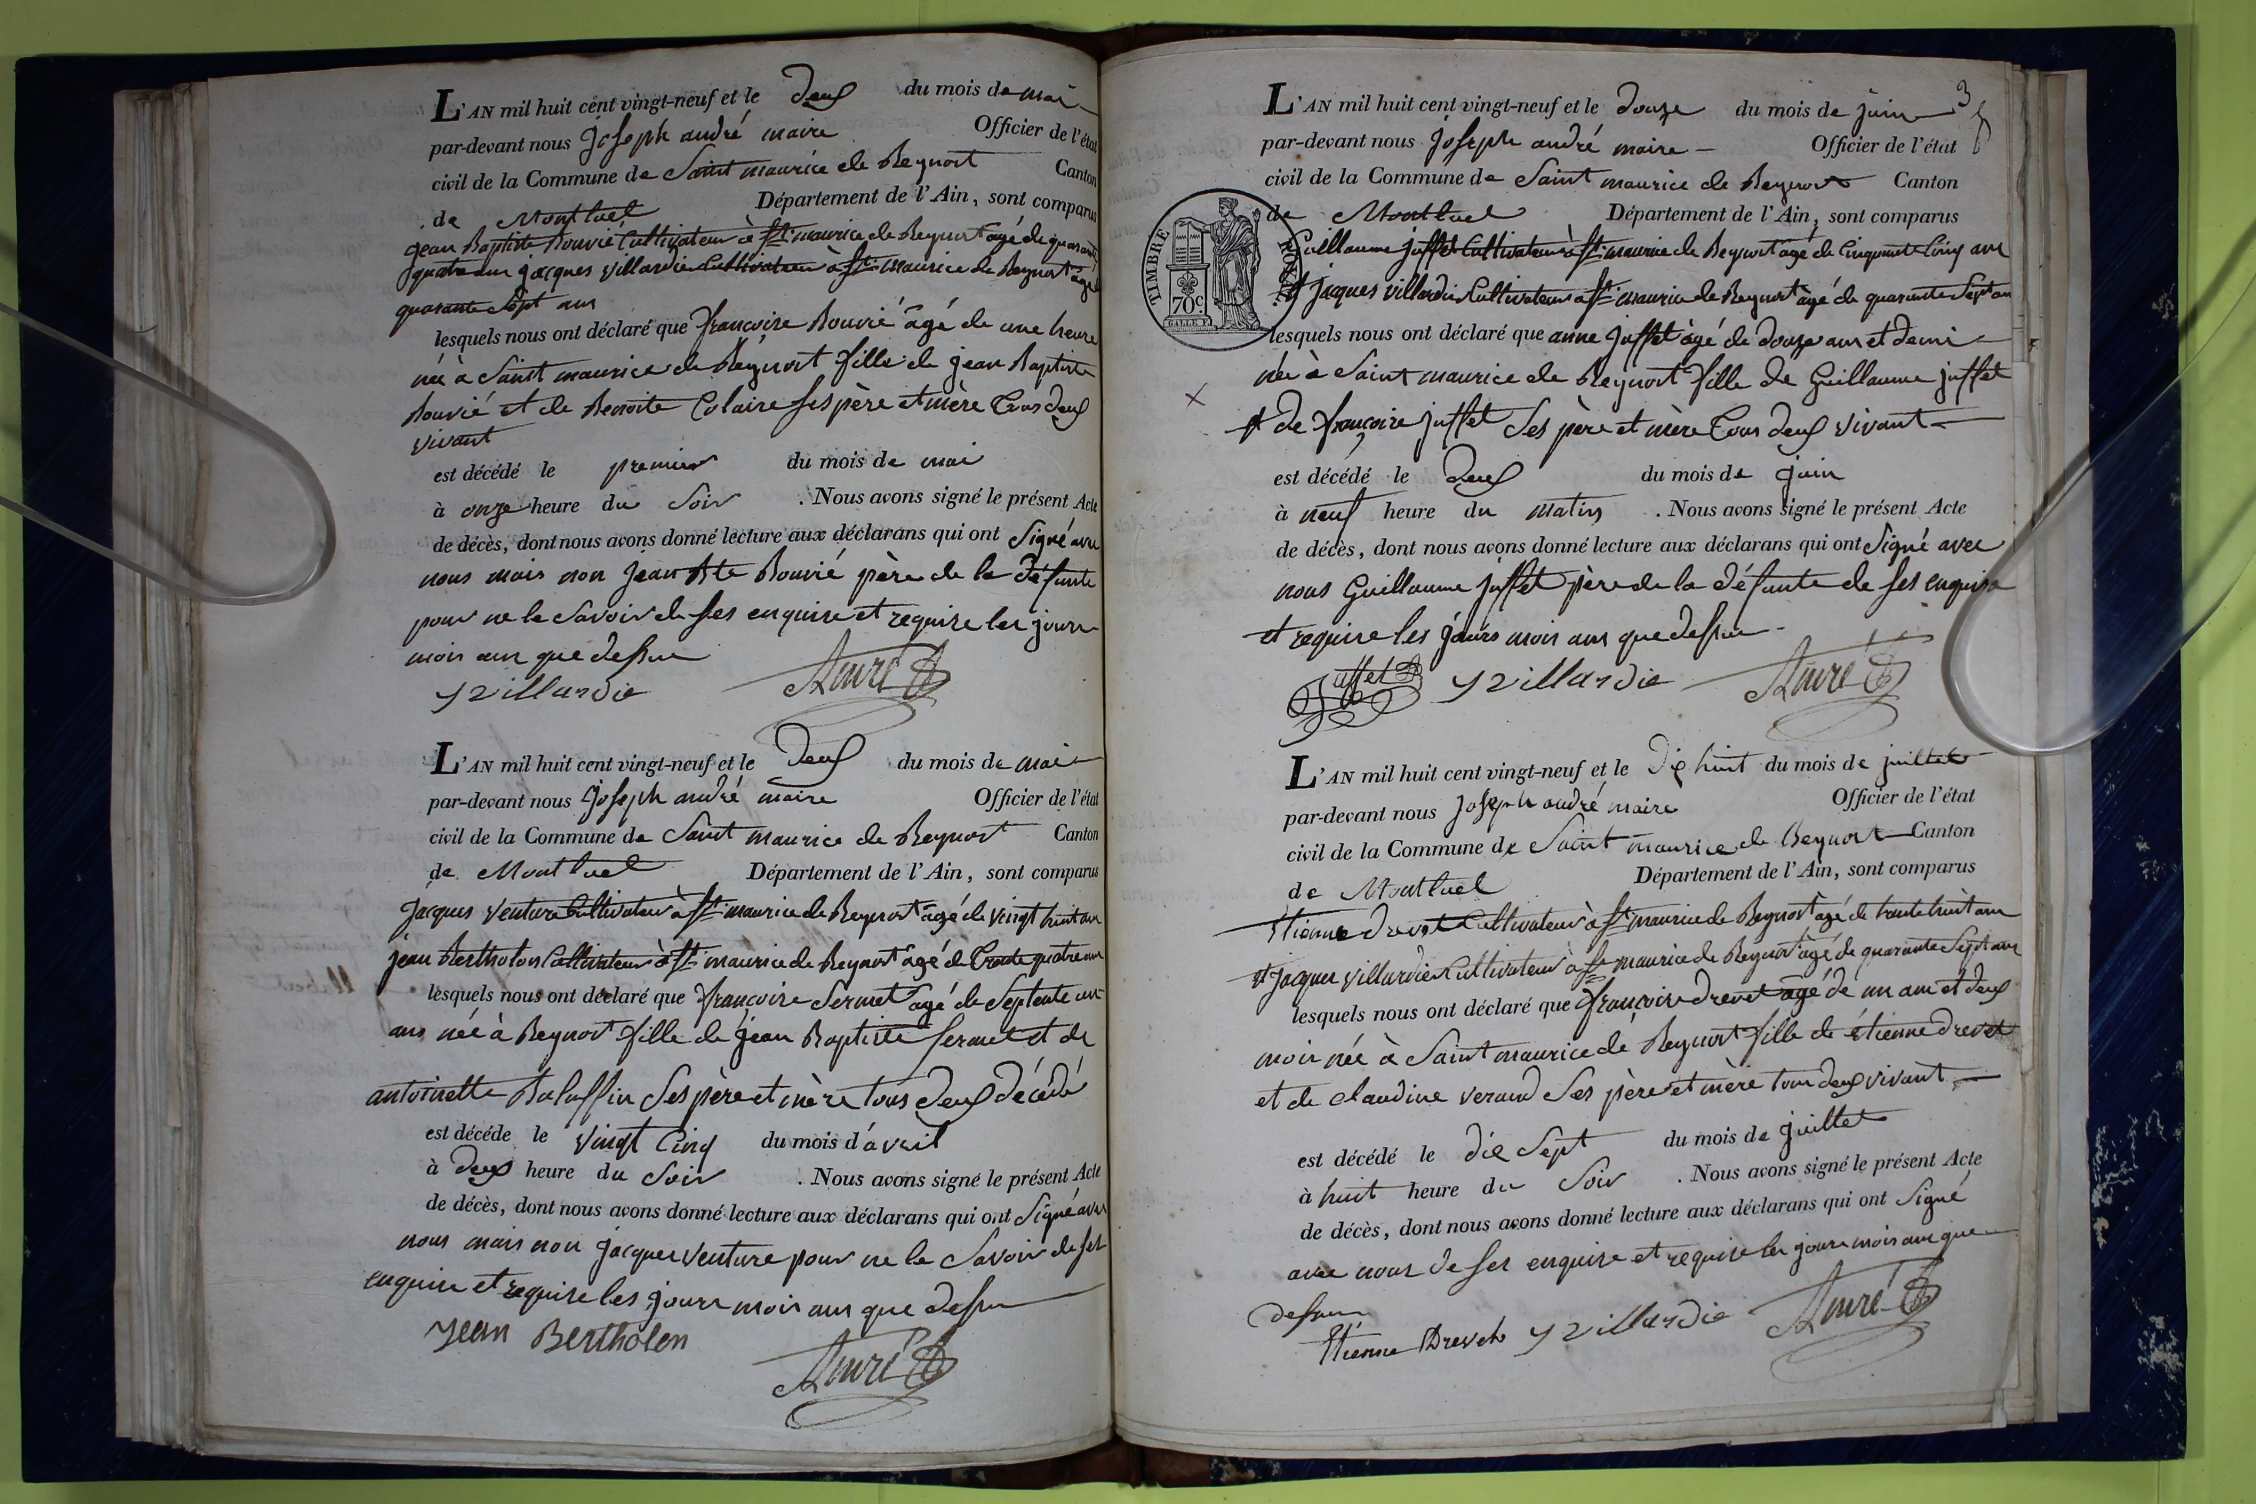 L'AN mil huit cent vingt-neuf et le deux du mois de mai
par-devant nous joseph andré maire Officier de l'état
civil de la Commune de Saint maurice de Beynost Canton
de Montluel Département de l'Ain, sont comparus
jean Baptiste Bouvié Cultivateur à St maurice de Beynost âgé de quarante
quatre ans jacques villardie Cultivateur à St maurice de Beynost âgé
quarante Sept ans
lesquels nous ont déclaré que françoise Bouvié âgé de une heure
née à Saint maurice de Beynost fille de jean Baptiste
Bouvié et de Benoite Colaire ses père et mère Tous deux
vivant
est décédé le premier du mois de mai
à onze heure du Soir . Nous avons signé le présent Acte
de décès, dont nous avons donné lecture aux déclarans qui ont Signé avec
nous mais non jean Bte Bouvié père de la défunte
pour ne le Savoir de ses enquise et requise les jours
mois ans que dessus
J villardie André
L'AN mil huit cent vingt-neuf et le deux du mois de mai
par-devant nous joseph andré maire Officier de l'état
civil de la Commune de Saint maurice de Beynost Canton
de Montluel Département de l'Ain, sont comparus
jacques venture Cultivateur à St maurice de Beynost âgé de vingt huit ans
jean Bertholon Cultivateur à St maurice de Beynost âgé de Trente quatre ans
lesquels nous ont déclaré que françoise Sermet âgé de Septente un
ans née à Beynost fille de jean Baptiste Sermet et de
antoinette Baluffin Ses père et mère tous deux décédé
est décéde le vingt Cinq du mois d'avril
à deux heure du Soir . Nous avons signé le présent Acte
de décès, dont nous avons donné lecture aux déclarans qui ont Signé avec
nous mais non jacques venture pour ne le Savoir de ses
enquise et requise les jours mois ans que dessus
Jean Bertholon
André
3
L'AN mil huit cent vingt-neuf et le douze du mois de juin
par-devant nous joseph andré maire Officier de l'état
civil de la Commune de Saint maurice de Beynost Canton
de Montluel Département de l'Ain, sont comparus
TIMBRE ROYAL
70c
Guillaume juffet Cultivateur à St maurice de Beynost âgé de Cinquante Cinq ans
et jacques villardie Cultivateur à St maurice de Beynost âgé de quarante Sept ans
lesquels nous ont déclaré que anne juffet âgé de douze ans et demi
née à Saint maurice de Beynost fille de Guillaume juffet
et de françoise juffet Ses père et mère Tous deux vivant
est décédé le deux du mois de juin
à neuf heure du matin . Nous avons signé le présent Acte
de décès, dont nous avons donné lecture aux déclarans qui ont Signé avec
nous Guillaume juffet père de la défunte de ses enquise
et requise les jours mois ans que dessus
Juffet J villardie André
L'AN mil huit cent vingt-neuf et le dix huit du mois de juillet
par-devant nous joseph andré maire Officier de l'état
civil de la Commune de Saint maurice de Beynost Canton
de Montluel Département de l'Ain, sont comparus
Etienne drevet Cultivateur à St maurice de Beynost âgé de trente huit ans
et jacques villardie Cultivateur à St maurice de Beynost âgé de quarante Sept ans
lesquels nous ont déclaré que françoise drevet âgé de un ans et deux
mois née à Saint maurice de Beynost fille de étienne drevet
et de claudine verand Ses père et mère tous deux vivant
est décédé le dix Sept du mois de juillet
à huit heure du Soir . Nous avons signé le présent Acte
de décès, dont nous avons donné lecture aux déclarans qui ont Signé
avec nous de ses enquise et requise les jours mois ans que
dessus
Etienne Drevet J villardie André